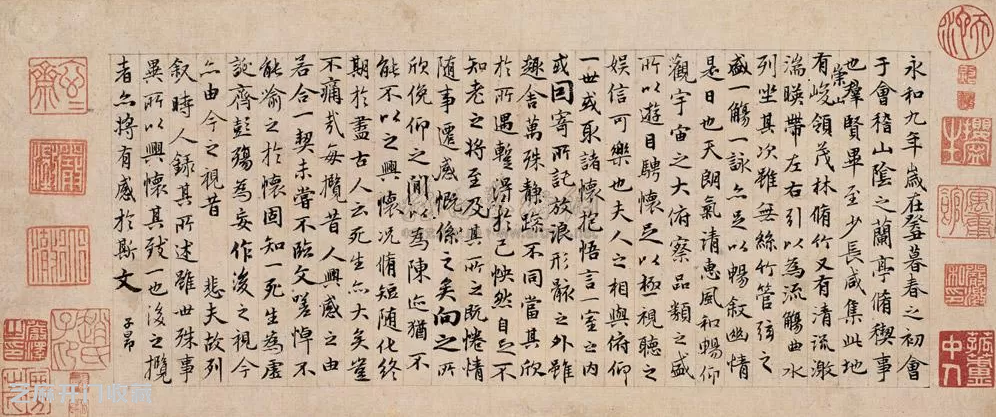 永和九年歲在癸丑暮春之初會
于會稽山陰之蘭亭脩稧事
也羣賢畢至少長咸集此地
有崇山峻領茂林脩竹又有清流激
湍暎帶左右引以為流觴曲水
列坐其次雖無絲竹管弦之
盛一觴一詠亦足以暢敘幽情
是日也天朗氣清惠風和暢仰
觀宇宙之大俯察品類之盛
所以遊目騁懷足以極視聽之
娛信可樂也夫人之相與俯仰
一世或取諸懷抱悟言一室之內
或因寄所託放浪形骸之外雖
趣舍萬殊靜躁不同當其欣
於所遇蹔得於己怏然自足不
知老之將至及其所之既惓情
隨事遷感慨係之矣向之所
欣俛仰之間以為陳迹猶不
能不以之興懷況脩短隨化終
期於盡古人云死生亦大矣豈
不痛哉每攬昔人興感之由
若合一契未嘗不臨文嗟悼不
能喻之於懷固知一死生為虛
誕齊彭殤為妄作後之視今
亦由今之視昔 悲夫故列
敘時人錄其所述雖世殊事
異所以興懷其致一也後之攬
者亦將有感於斯文
子昂
芝麻开门收网